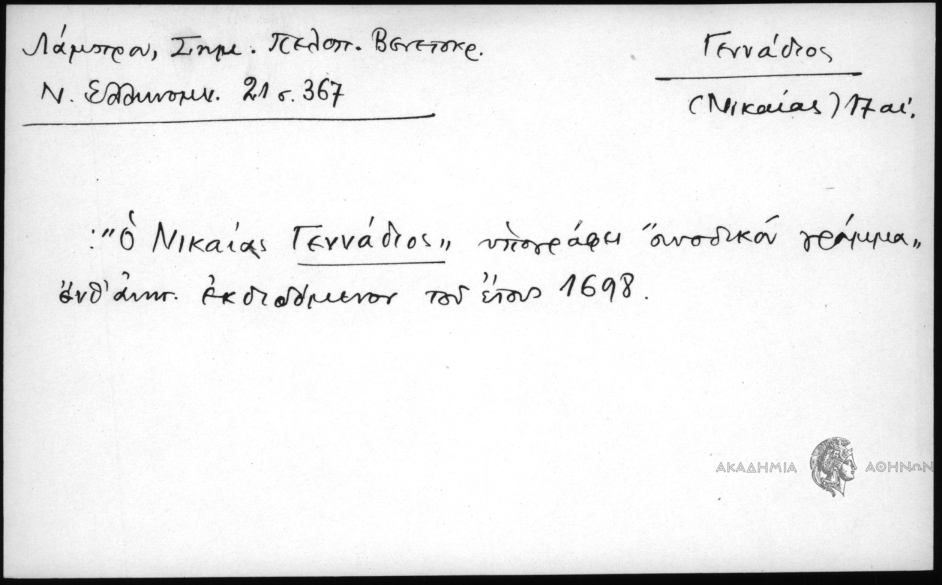 Λάμπρου, Σημ. Πελοπ. Βενετοκρ.
Ν. Ελληνομν. 21 σ. 367
Γεννάδιος
(Νικαίας) 17 αἰ.
: "Ὁ Νικαίας Γεννάδιος„ ὑπογράφει "συνοδικὸν γράμμα„
ἐκδιδόμενον τοῦ ἔτους 1698.
ΑΚΑΔΗΜΙΑ ΑΘΗΝΩΝ